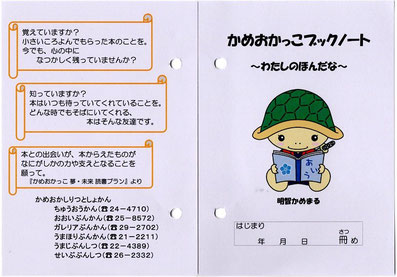 覚えていますか?
小さいころよんでもらった本のことを。
今でも、心の中に
なつかしく残っていませんか?
知っていますか?
本はいつも待っていてくれていることを。
どんな時でもそばにいてくれる、
本はそんな友達です。
本との出会いが、本からえたものが
なにがしかの力や支えとなることを
願って。
『かめおかっこ 夢・未来 読書プラン』より
かめおかしりつとしょかん
ちゅうおうかん(☎24-4710)
おおいぶんかん(☎25-8572)
ガレリアぶんかん(☎29-2702)
うまほりぶんかん(☎21-2211)
うまじぶんしつ(☎22-4389)
せいぶぶんしつ(☎26-2332)
かめおかっこブックノート
~わたしのほんだな~
あいう
明智かめまる
はじまり
年 月 日
さつ
冊め